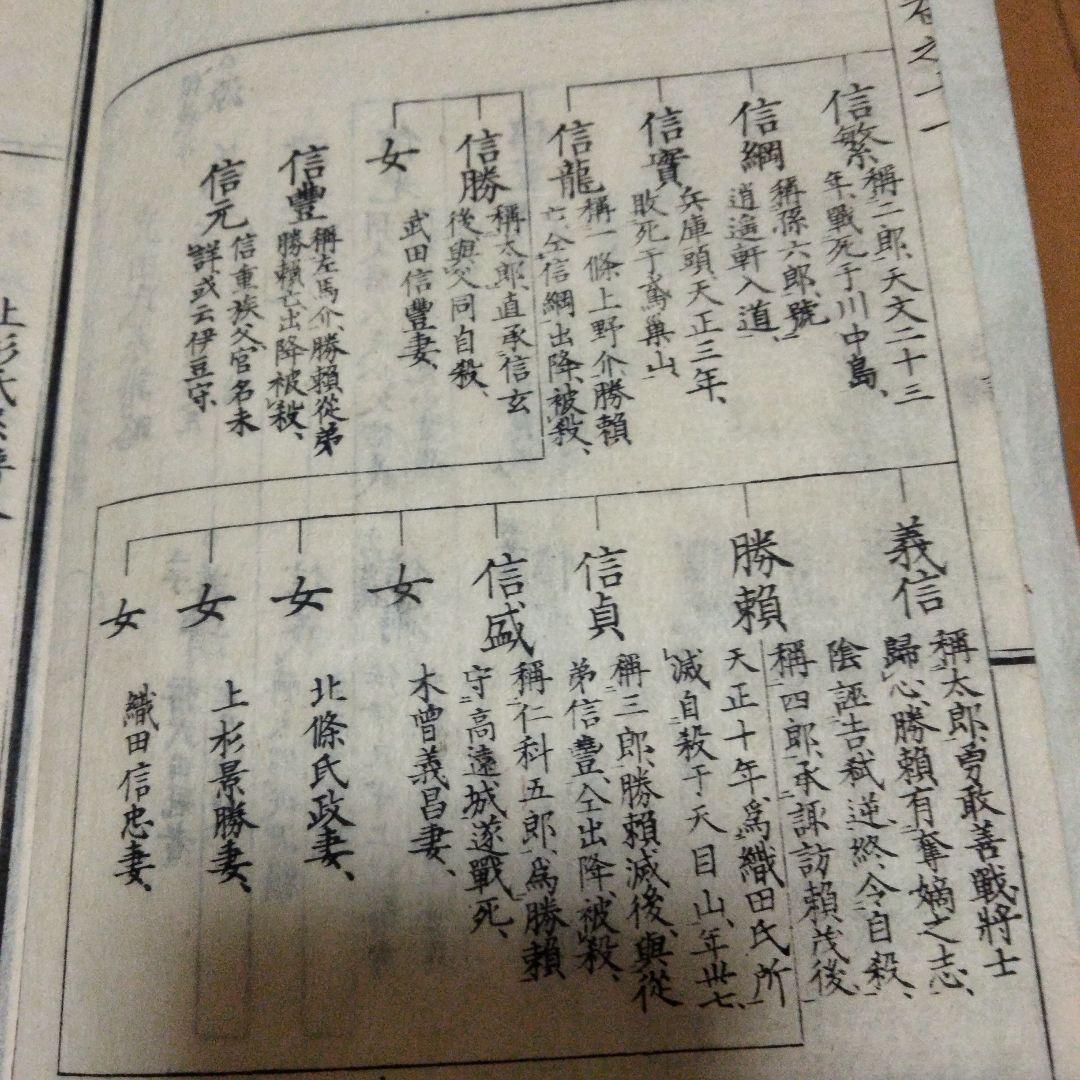 信繁
稱二郎、天文二十三
年、戰死于川中島、
信綱
稱孫六郎、號
逍遙軒入道、
信實
兵庫頭、天正三年、
敗死于鳶巢山、
信龍
稱一條上野介、勝賴
亡、仝信綱出降、被殺、
信勝
稱太郎、直承信玄
後、與父同自殺、
女
武田信豐妻、
信豐
稱左馬介、勝賴從弟
勝賴亡出降被殺、
信元
信重族父官名未
詳或云伊豆守、
義信
稱太郎、勇敢善戰、將士
歸心、勝賴有奪嫡之志、
陰誣吉弒逆、終令自殺、
勝賴
稱四郎、承諏訪賴茂後、
天正十年、爲織田氏所
滅、自殺于天目山、年卅七、
信貞
稱三郎、勝賴滅後、與從
弟信豐、仝出降、被殺、
信盛
稱仁科五郎、爲勝賴
守高遠城、遂戰死、
女
木曾義昌妻、
女
北條氏政妻、
女
上杉景勝妻、
女
織田信忠妻、